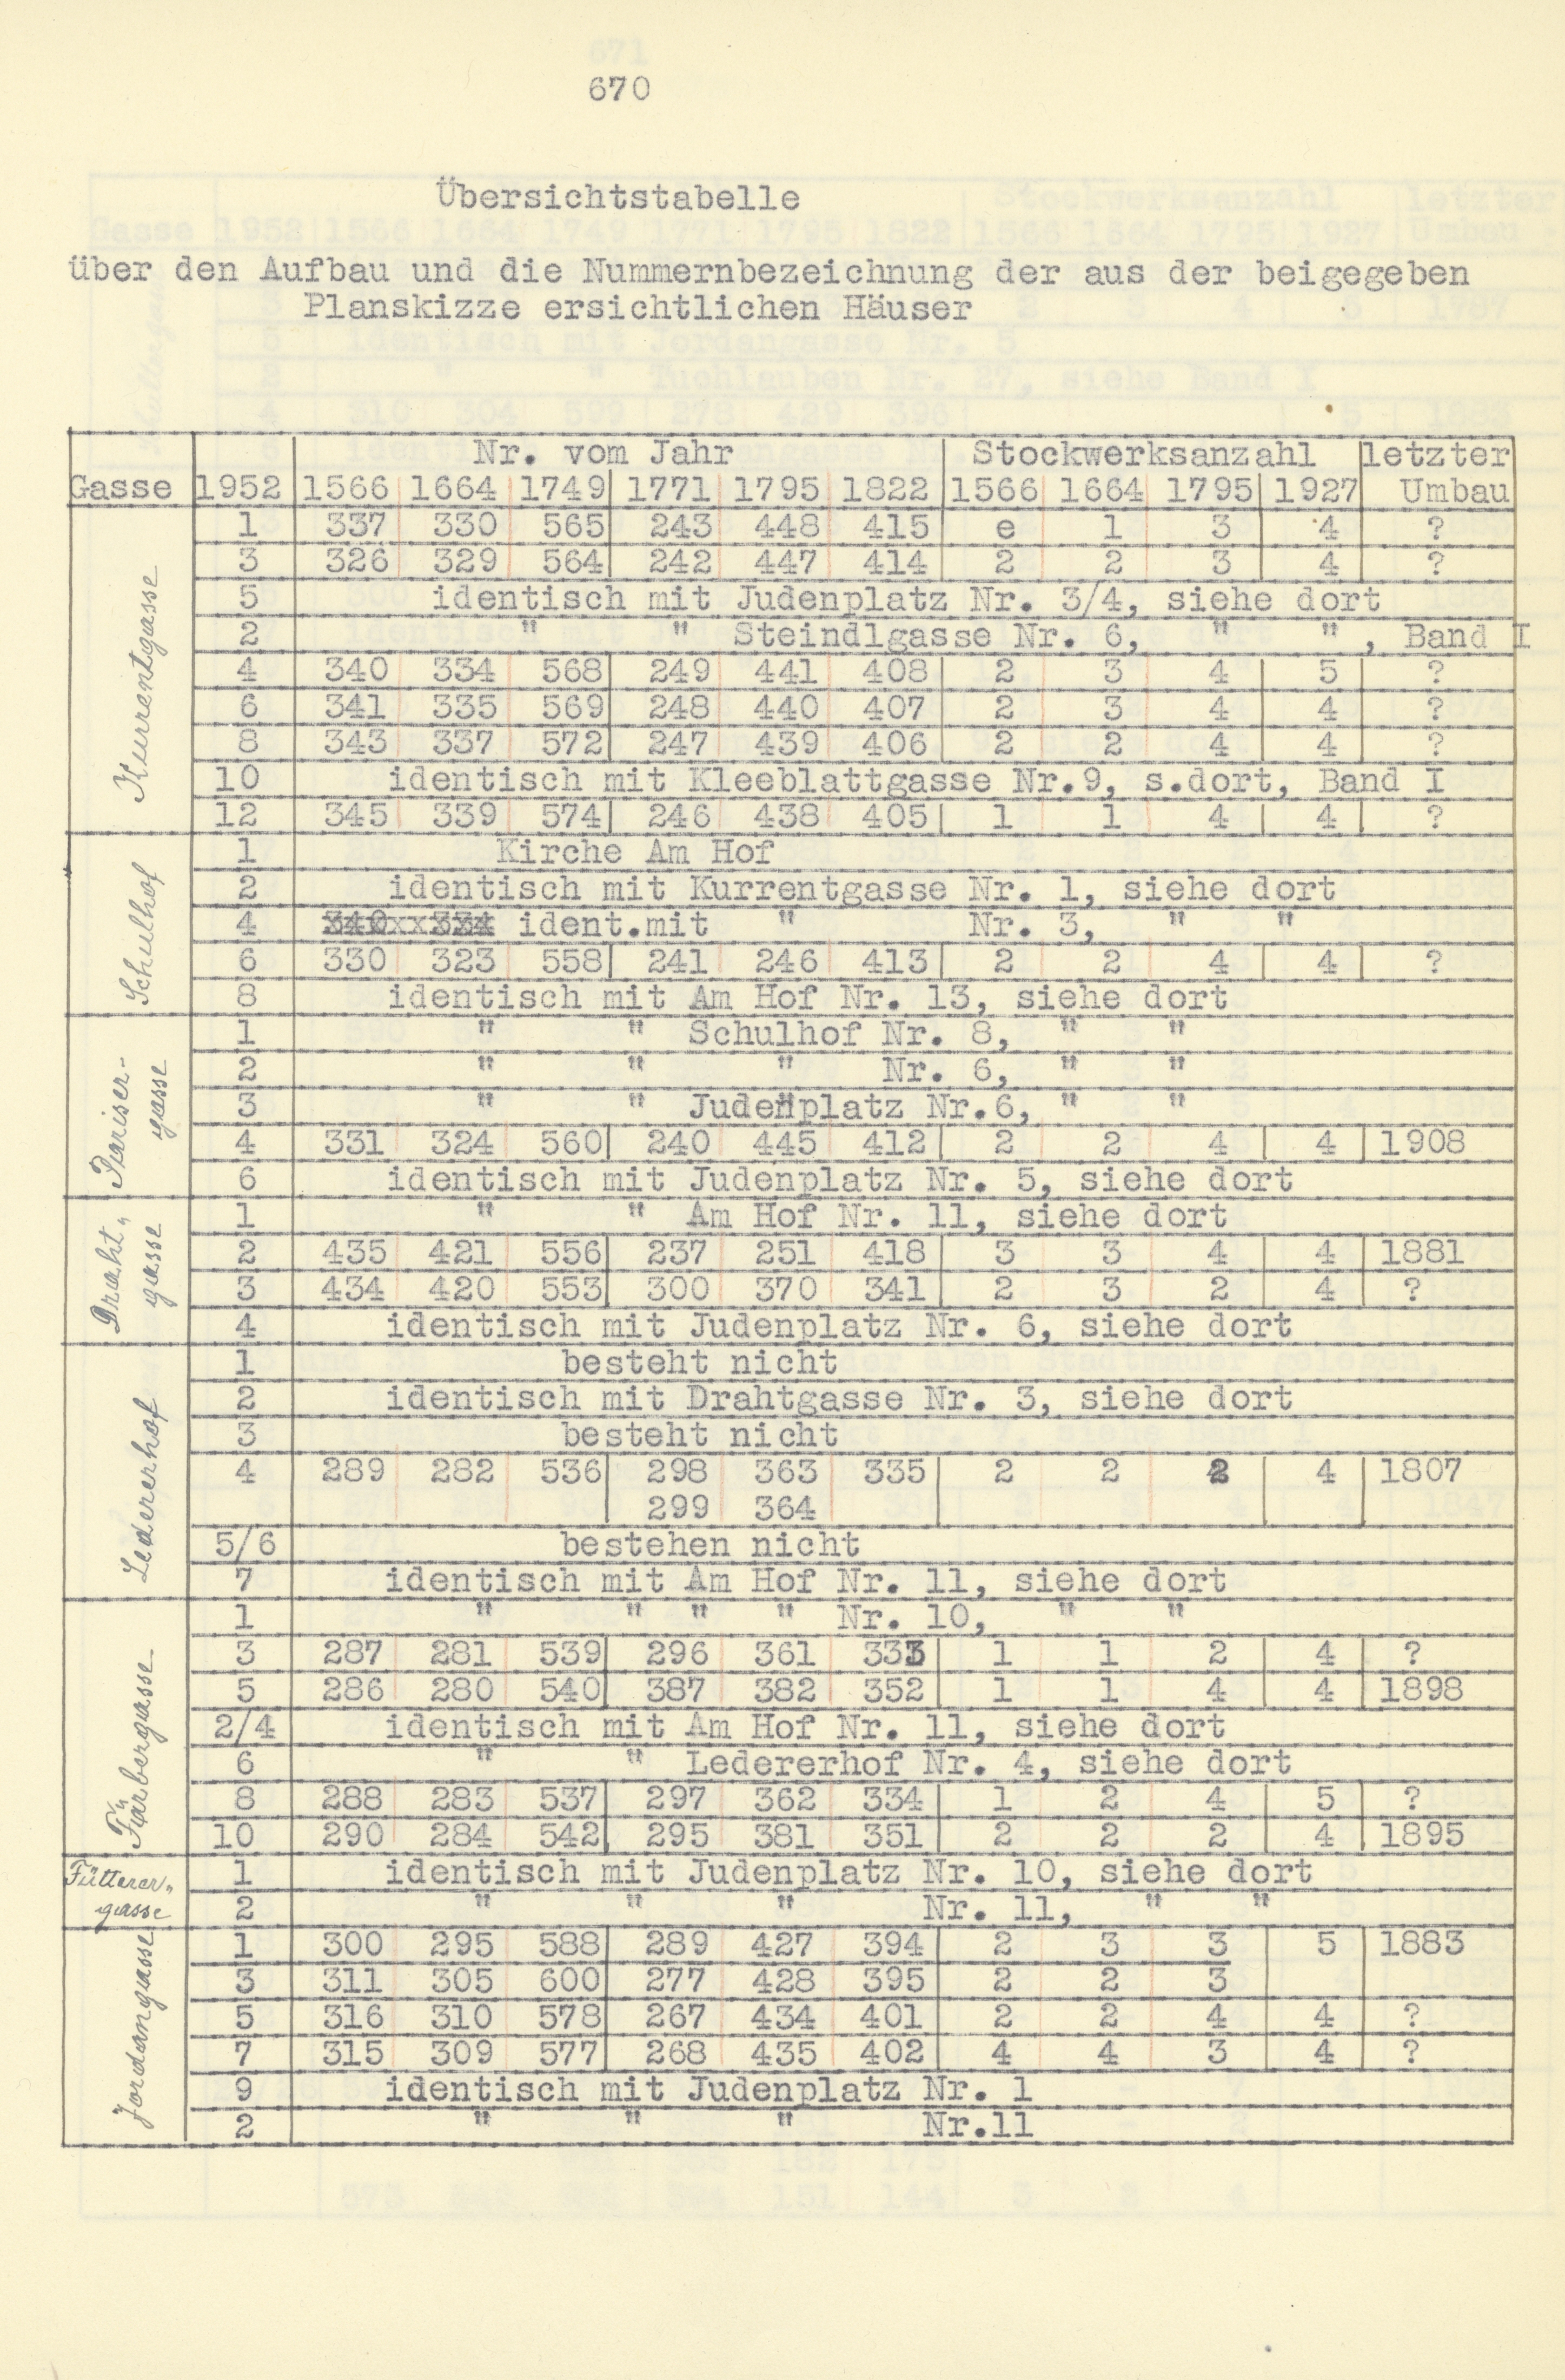 670
Übersichtstabelle
über den Aufbau und die Nummernbezeichnung der aus der beigegeben
Planskizze ersichtlichen Häuser
Nr. vom Jahr Stockwerksanzahl letzter
Gasse 1952 1566 1664 1749 1771 1795 1822 1566 1664 1795 1927 Umbau
Kurrentgasse
1 337 330 565 243 448 415 e 1 3 4 ?
3 326 329 564 242 447 414 2 2 3 4 ?
5 identisch mit Judenplatz Nr. 3/4, siehe dort
2 " " Steindlgasse Nr. 6, " " , Band I
4 340 334 568 249 441 408 2 3 4 5 ?
6 341 335 569 248 440 407 2 3 4 4 ?
8 343 337 572 247 439 406 2 2 4 4 ?
10 identisch mit Kleeblattgasse Nr.9, s.dort, Band I
12 345 339 574 246 438 405 1 1 4 4 ?
Schulhof
1 Kirche Am Hof
2 identisch mit Kurrentgasse Nr. 1, siehe dort
4 340xx334 ident.mit " Nr. 3, " "
6 330 323 558 241 246 413 2 2 4 4 ?
8 identisch mit Am Hof Nr. 13, siehe dort
Pariser-
gasse
1 " " Schulhof Nr. 8, " "
2 " " " Nr. 6, " "
3 " " Judenplatz Nr.6, " "
4 331 324 560 240 445 412 2 2 4 4 1908
6 identisch mit Judenplatz Nr. 5, siehe dort
Draht„
gasse
1 " " Am Hof Nr. 11, siehe dort
2 435 421 556 237 251 418 3 3 4 4 1881
3 434 420 553 300 370 341 2 3 2 4 ?
4 identisch mit Judenplatz Nr. 6, siehe dort
Ledererhof
1 besteht nicht
2 identisch mit Drahtgasse Nr. 3, siehe dort
3 besteht nicht
4 289 282 536 298 363 335 2 2 2 4 1807
299 364
5/6 bestehen nicht
7 identisch mit Am Hof Nr. 11, siehe dort
Färbergasse
1 " " " " Nr. 10, " "
3 287 281 539 296 361 333 1 1 2 4 ?
5 286 280 540 387 382 352 1 1 4 4 1898
2/4 identisch mit Am Hof Nr. 11, siehe dort
6 " " Ledererhof Nr. 4, siehe dort
8 288 283 537 297 362 334 1 2 4 5 ?
10 290 284 542 295 381 351 2 2 2 4 1895
Fütterer„
gasse
1 identisch mit Judenplatz Nr. 10, siehe dort
2 " " " Nr. 11, " "
Jordangasse
1 300 295 588 289 427 394 2 3 3 5 1883
3 311 305 600 277 428 395 2 2 3
5 316 310 578 267 434 401 2 2 4 4 ?
7 315 309 577 268 435 402 4 4 3 4 ?
9 identisch mit Judenplatz Nr. 1
2 " " " Nr.11